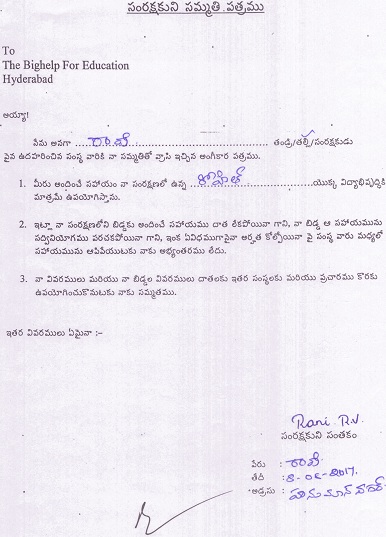 సంరక్షకుని సమ్మతి పత్రము
To
The Bighelp For Education
Hyderabad
అయ్యా!
నేను అనగా రాణి తండ్రి/తల్లి/సంరక్షకుడు
పైన ఉదహరించిన సంస్థ వారికి నా సమ్మతితో వ్రాసి ఇచ్చిన అంగీకార పత్రము.
1. మీరు అందించే సహాయం నా సంరక్షణలో ఉన్న యొక్క విద్యాభివృద్ధికి
మాత్రమే ఉపయోగిస్తాను.
2. ఇట్లా నా సంరక్షణలోని బిడ్డకు అందించే సహాయము దాత లేకపోయినా గాని, నా బిడ్డ ఆ సహాయమును
సద్వినియోగము పరచకపోయినా గాని, ఇంక ఏవిధముగానైనా అర్హత కోల్పోయినా పై సంస్థ వారు మధ్యలో
సహాయమును ఆపివేయుటకు నాకు అభ్యంతరము లేదు.
3. నా వివరములు మరియు నా బిడ్డల వివరములు దాతలకు ఇతర సంస్థలకు మరియు ప్రచారము కొరకు
ఉపయోగించుకొనుటకు నాకు సమ్మతము.
ఇతర వివరములు ఏమైనా :-
Rani R.V.
సంరక్షకుని సంతకం
పేరు : రాణి
తేదీ : 8-06-2017.
అడ్రసు :